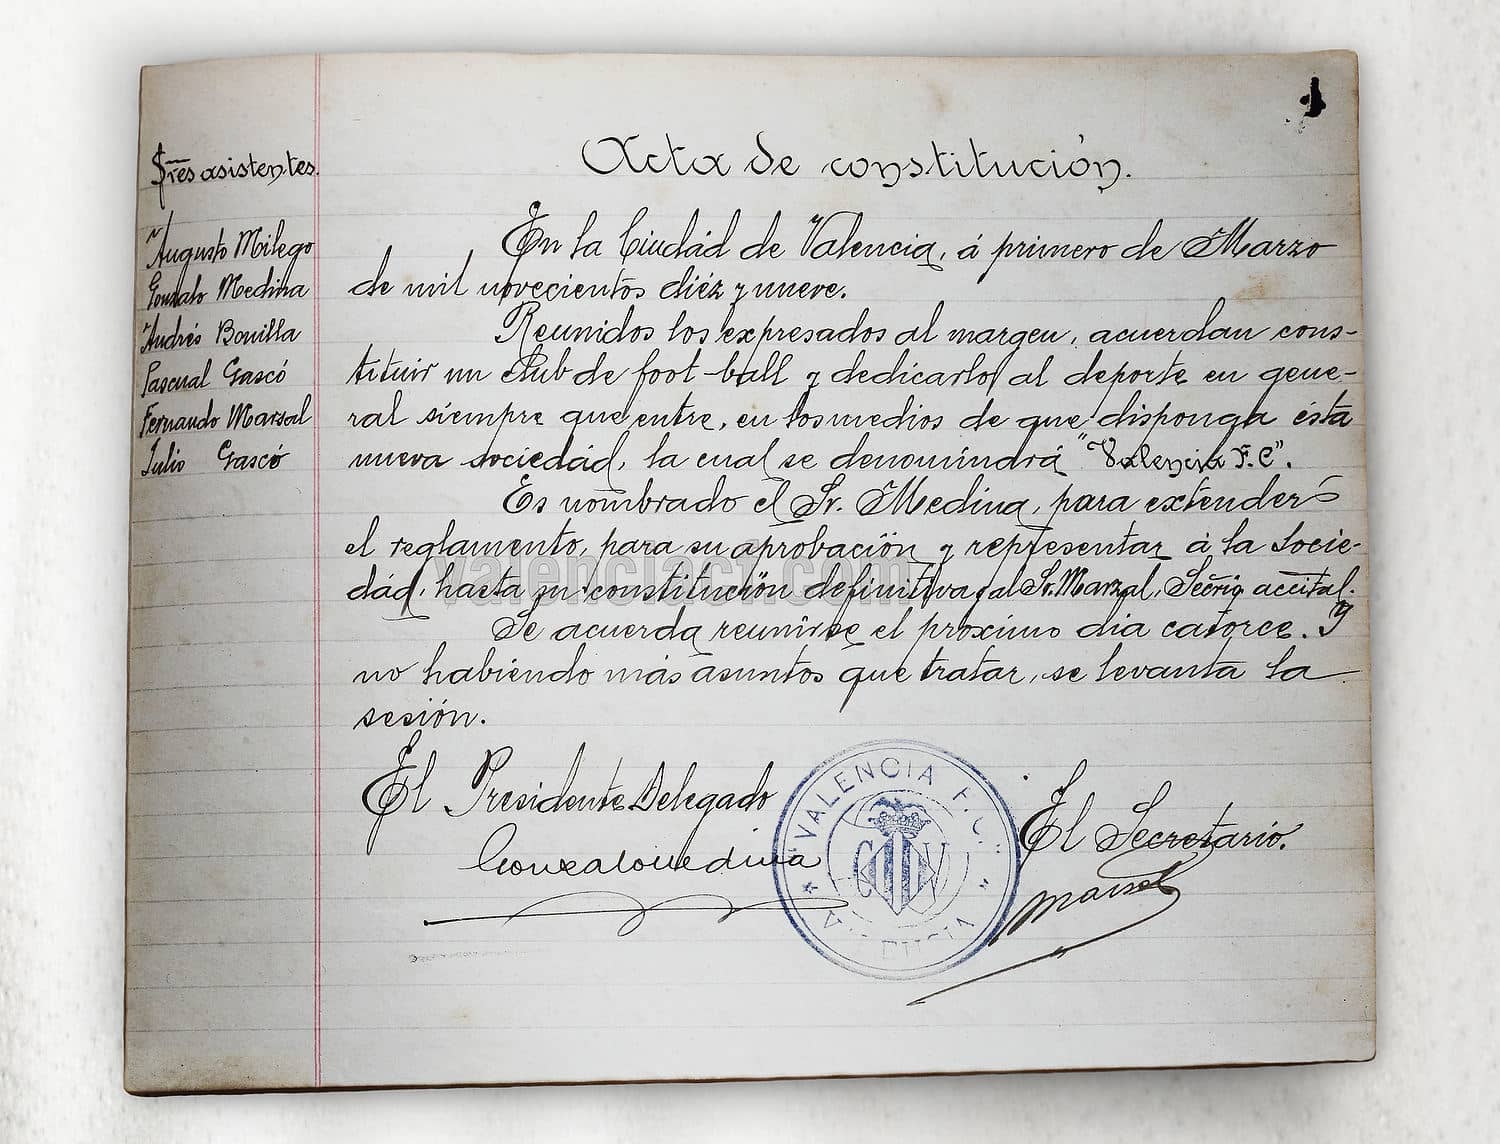 1
Sres asistentes.
Augusto Milego
Gonzalo Medina
Andrés Bonilla
Pascual Gascó
Fernando Marsal
Julio Gascó
Acta de constitución.
En la Ciudád de Valencia, á primero de Marzo
de mil novecientos diéz y nueve.
Reunidos los expresados al margen, acuerdan cons-
tituir un Club de foot-ball y dedicarlo al deporte en gene-
ral siempre que entre, en los medios de que disponga ésta
nueva sociedád, la cual se denomindrá "Valencia F.C".
Es nombrado el Sr. Medina, para extender
el reglamento, para su aprobación y representar á la Socie-
dád, hasta su constitución definitiva, al Sr. Marzal, Secrio accital.
Se acuerda reunirse el próximo dia catorce. Y
no habiendo más asuntos que tratar, se levanta la
sesión.
El Presidente Delegado
Gonzalo Medina
El Secretario.
Marsal
"VALENCIA F.C."
VALENCIA
C V
valenciacf.com